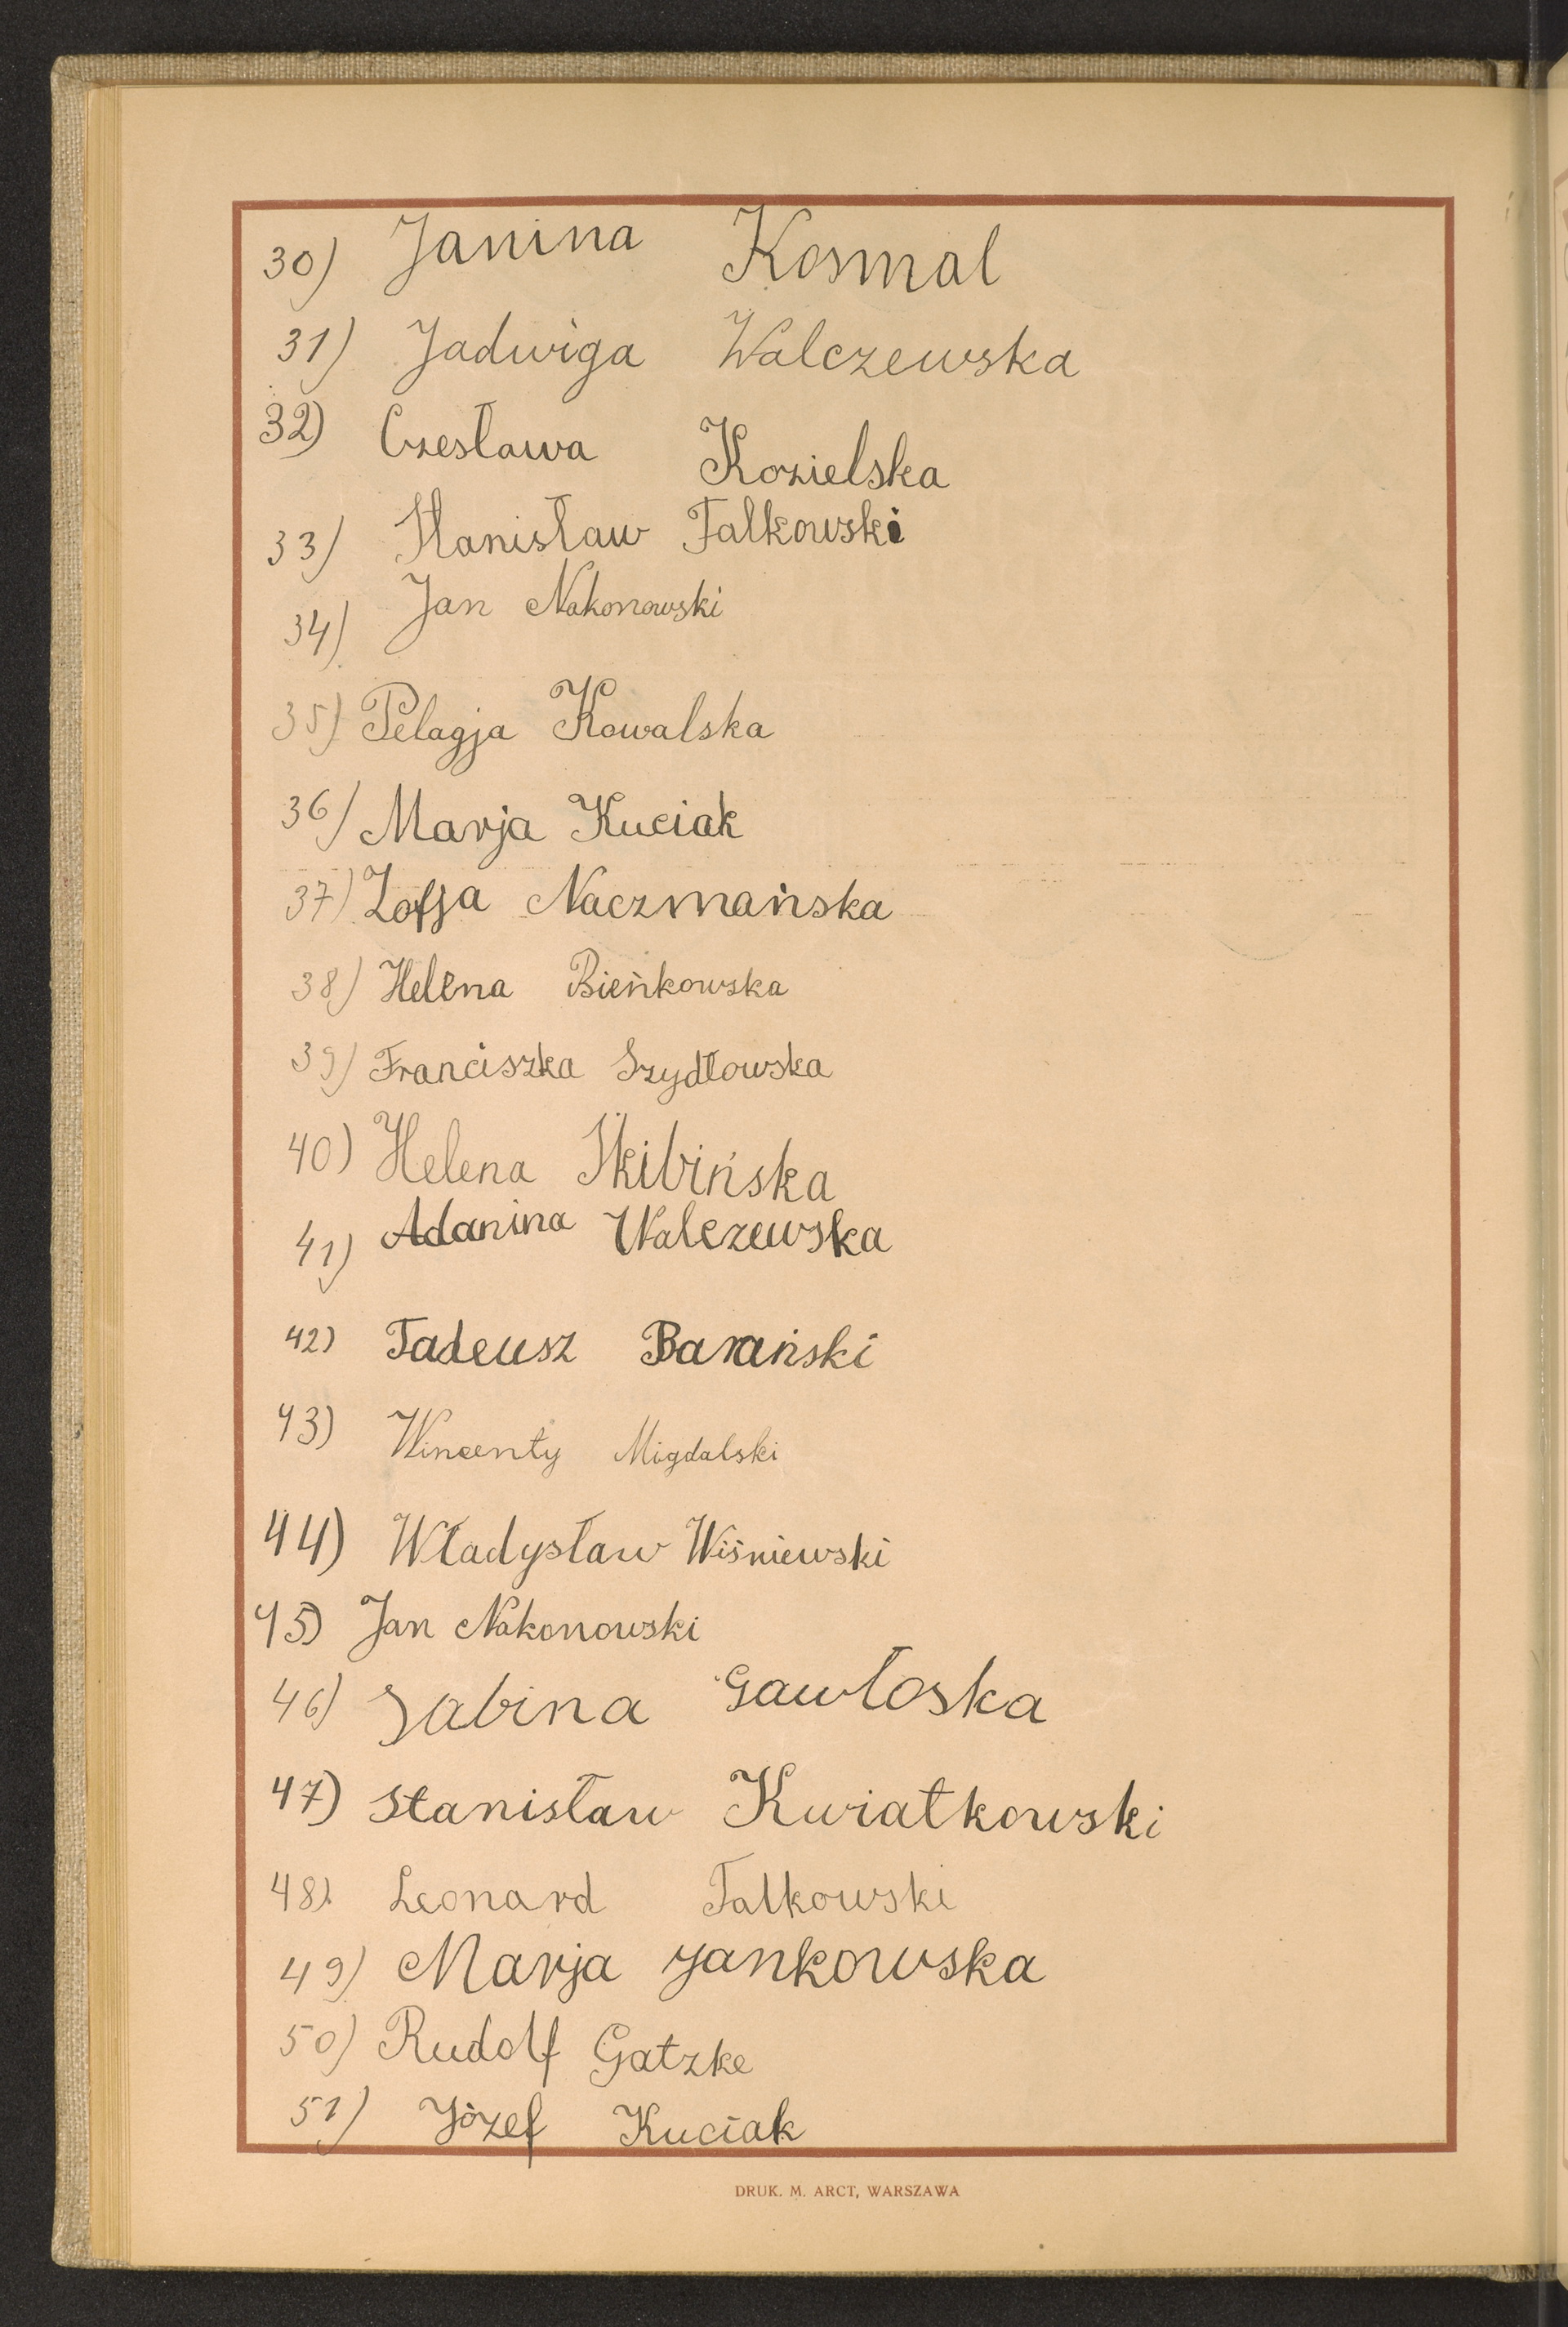 30) Janina Kosmal
31) Jadwiga Walczewska
32) Czesława Kozielska
33) Stanisław Falkowski
34) Jan Nakonowski
35) Pelagja Kowalska
36) Marja Kuciak
37) Zofja Naczmańska
38) Helena Bieńkowska
39) Franciszka Szydłowska
40) Helena Skibińska
41) Adanina Walczewska
42) Tadeusz Barański
43) Wincenty Migdalski
44) Władysław Wiśniewski
45) Jan Nakonowski
46) Sabina Gawłoska
47) Stanisław Kwiatkowski
48) Leonard Falkowski
49) Marja Jankowska
50) Rudolf Gatzke
51) Józef Kuciak
DRUK. M. ARCT, WARSZAWA